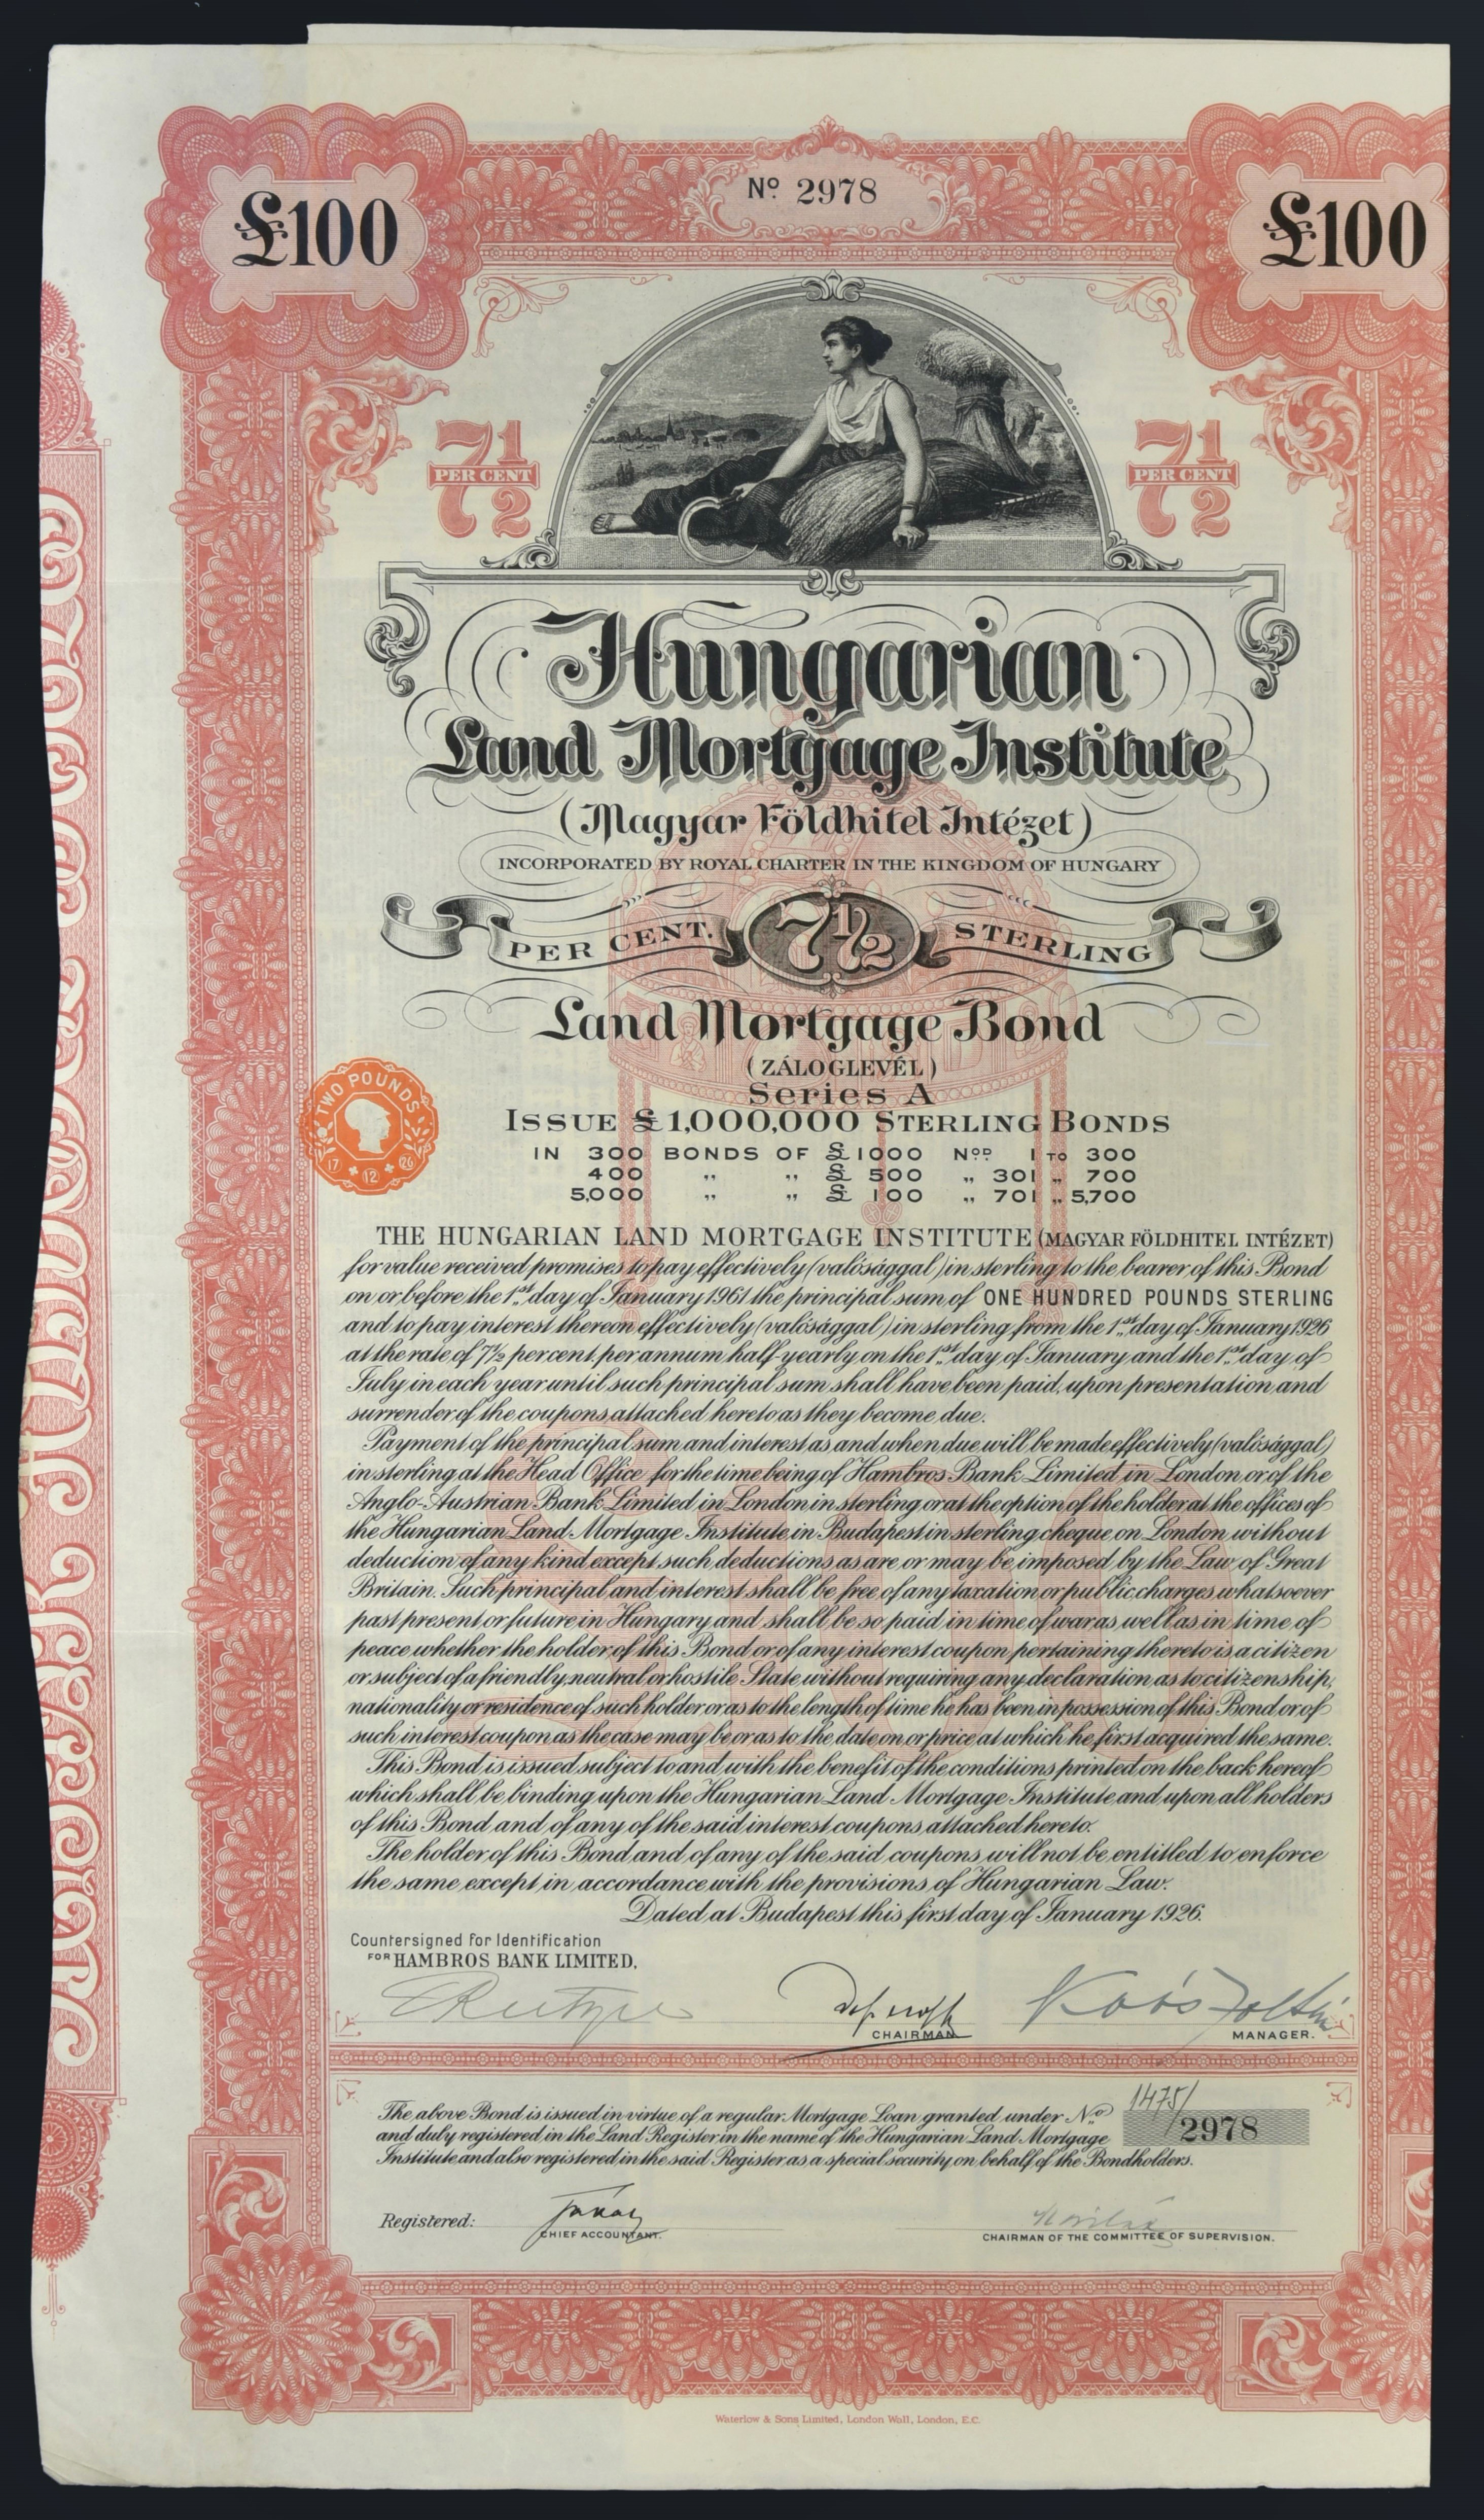 Nº 2978
£100
£100
7½ PER CENT
7½ PER CENT
Hungarian
Land Mortgage Institute
(Magyar Földhitel Intézet)
INCORPORATED BY ROYAL CHARTER IN THE KINGDOM OF HUNGARY
PER CENT. 7½ STERLING
Land Mortgage Bond
(ZÁLOGLEVÉL)
Series A
TWO POUNDS
17 12 26
ISSUE £1,000,000 STERLING BONDS
IN 300 BONDS OF £1000 Nos 1 TO 300
400 „ „ £ 500 „ 301 „ 700
5,000 „ „ £ 100 „ 701 „ 5,700
THE HUNGARIAN LAND MORTGAGE INSTITUTE (MAGYAR FÖLDHITEL INTÉZET)
for value received promises to pay effectively (valósággal) in sterling to the bearer of this Bond
on or before the 1st day of January 1961 the principal sum of ONE HUNDRED POUNDS STERLING
and to pay interest thereon effectively (valósággal) in sterling from the 1st day of January 1926
at the rate of 7½ per cent per annum half-yearly on the 1st day of January and the 1st day of
July in each year until such principal sum shall have been paid, upon presentation and
surrender of the coupons attached hereto as they become due.
Payment of the principal sum and interest as and when due will be made effectively (valósággal)
in sterling at the Head Office for the time being of Hambros Bank Limited in London or of the
Anglo-Austrian Bank Limited in London in sterling or at the option of the holder at the offices of
the Hungarian Land Mortgage Institute in Budapest in sterling cheque on London without
deduction of any kind except such deductions as are or may be imposed by the Law of Great
Britain. Such principal and interest shall be free of any taxation or public charges whatsoever
past present or future in Hungary and shall be so paid in time of war as well as in time of
peace whether the holder of this Bond or of any interest coupon pertaining thereto is a citizen
or subject of a friendly, neutral or hostile State without requiring any declaration as to citizenship,
nationality or residence of such holder or as to the length of time he has been in possession of this Bond or of
such interest coupon as the case may be or as to the date on or price at which he first acquired the same.
This Bond is issued subject to and with the benefit of the conditions printed on the back hereof
which shall be binding upon the Hungarian Land Mortgage Institute and upon all holders
of this Bond and of any of the said interest coupons attached hereto.
The holder of this Bond and of any of the said coupons will not be entitled to enforce
the same except in accordance with the provisions of Hungarian Law.
Dated at Budapest this first day of January 1926.
Countersigned for Identification
FOR HAMBROS BANK LIMITED.
Koós Zoltán
CHAIRMAN
MANAGER.
The above Bond is issued in virtue of a regular Mortgage Loan granted under No 1475/2978
and duly registered in the Land Register in the name of the Hungarian Land Mortgage
Institute and also registered in the said Register as a special security on behalf of the Bondholders.
Registered:
CHIEF ACCOUNTANT.
CHAIRMAN OF THE COMMITTEE OF SUPERVISION.
Waterlow & Sons Limited, London Wall, London, E.C.